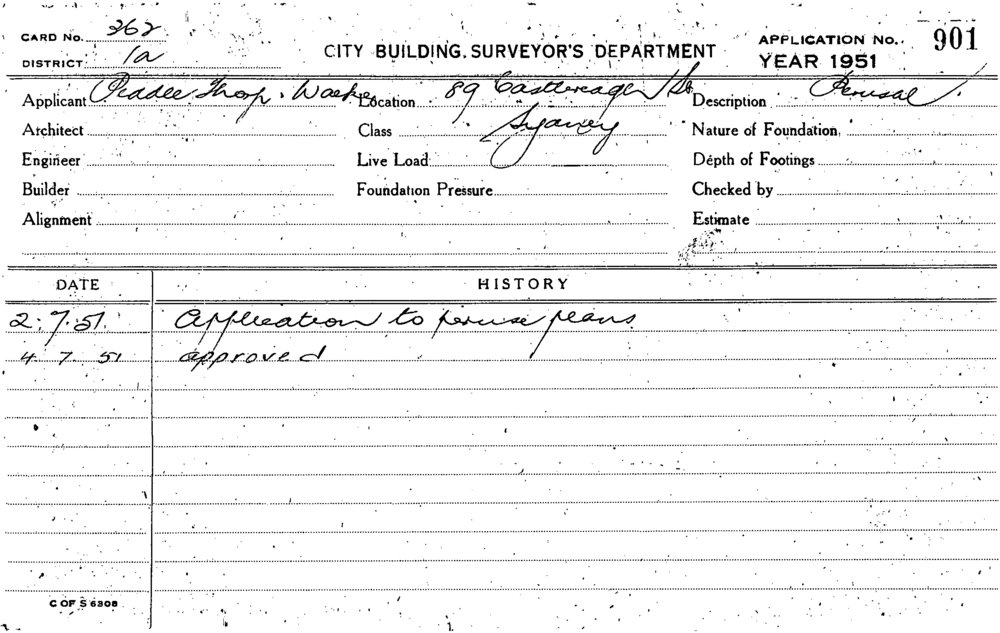 CARD No. 362
DISTRICT 1a
CITY BUILDING SURVEYOR'S DEPARTMENT
APPLICATION No. 901
YEAR 1951
Applicant Peddle Thorp. Location 89 Castlereagh St Description Perusal
Architect Class Sydney Nature of Foundation
Engineer Live Load Depth of Footings
Builder Foundation Pressure Checked by
Alignment Estimate
DATE HISTORY
2.7.51. Application to peruse plans
4 7 51 approved
C OF S 6308